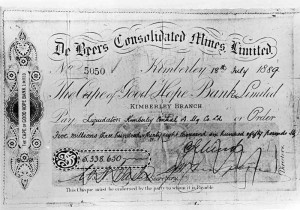 De Beers Consolidated Mines, Limited.
No 5050 Kimberley 18th July 1889
The Cape of Good Hope Bank, Limited
KIMBERLEY BRANCH
Pay Liquidators Kimberley Central D. Mg Co Ld or Order
Five millions three hundred thirty eight thousand six hundred fifty pounds Stg
£ 5,338,650
This Cheque must be endorsed by the party to whom it is Payable.
THE CAPE OF GOOD HOPE BANK LIMITED